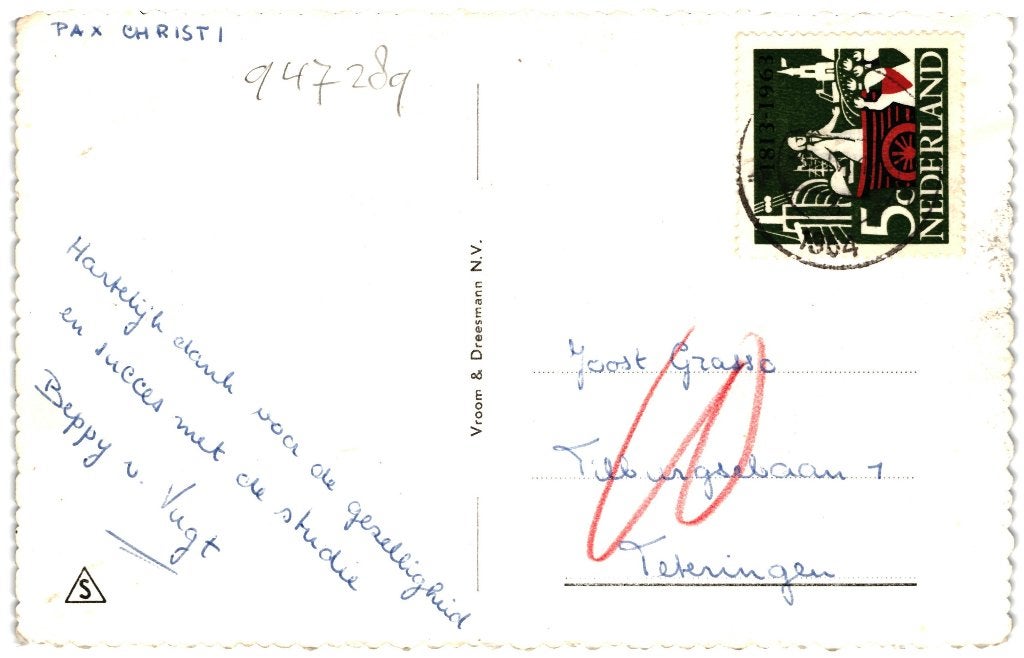 PAX CHRISTI
947289
1813-1963
5c
NEDERLAND
1964
Hartelijk dank voor de gezelligheid
en succes met de studie
Beppy v. Vugt
S
Vroom & Dreesmann N.V.
Joost Grasso
Tilburgsebaan 1
Teteringen